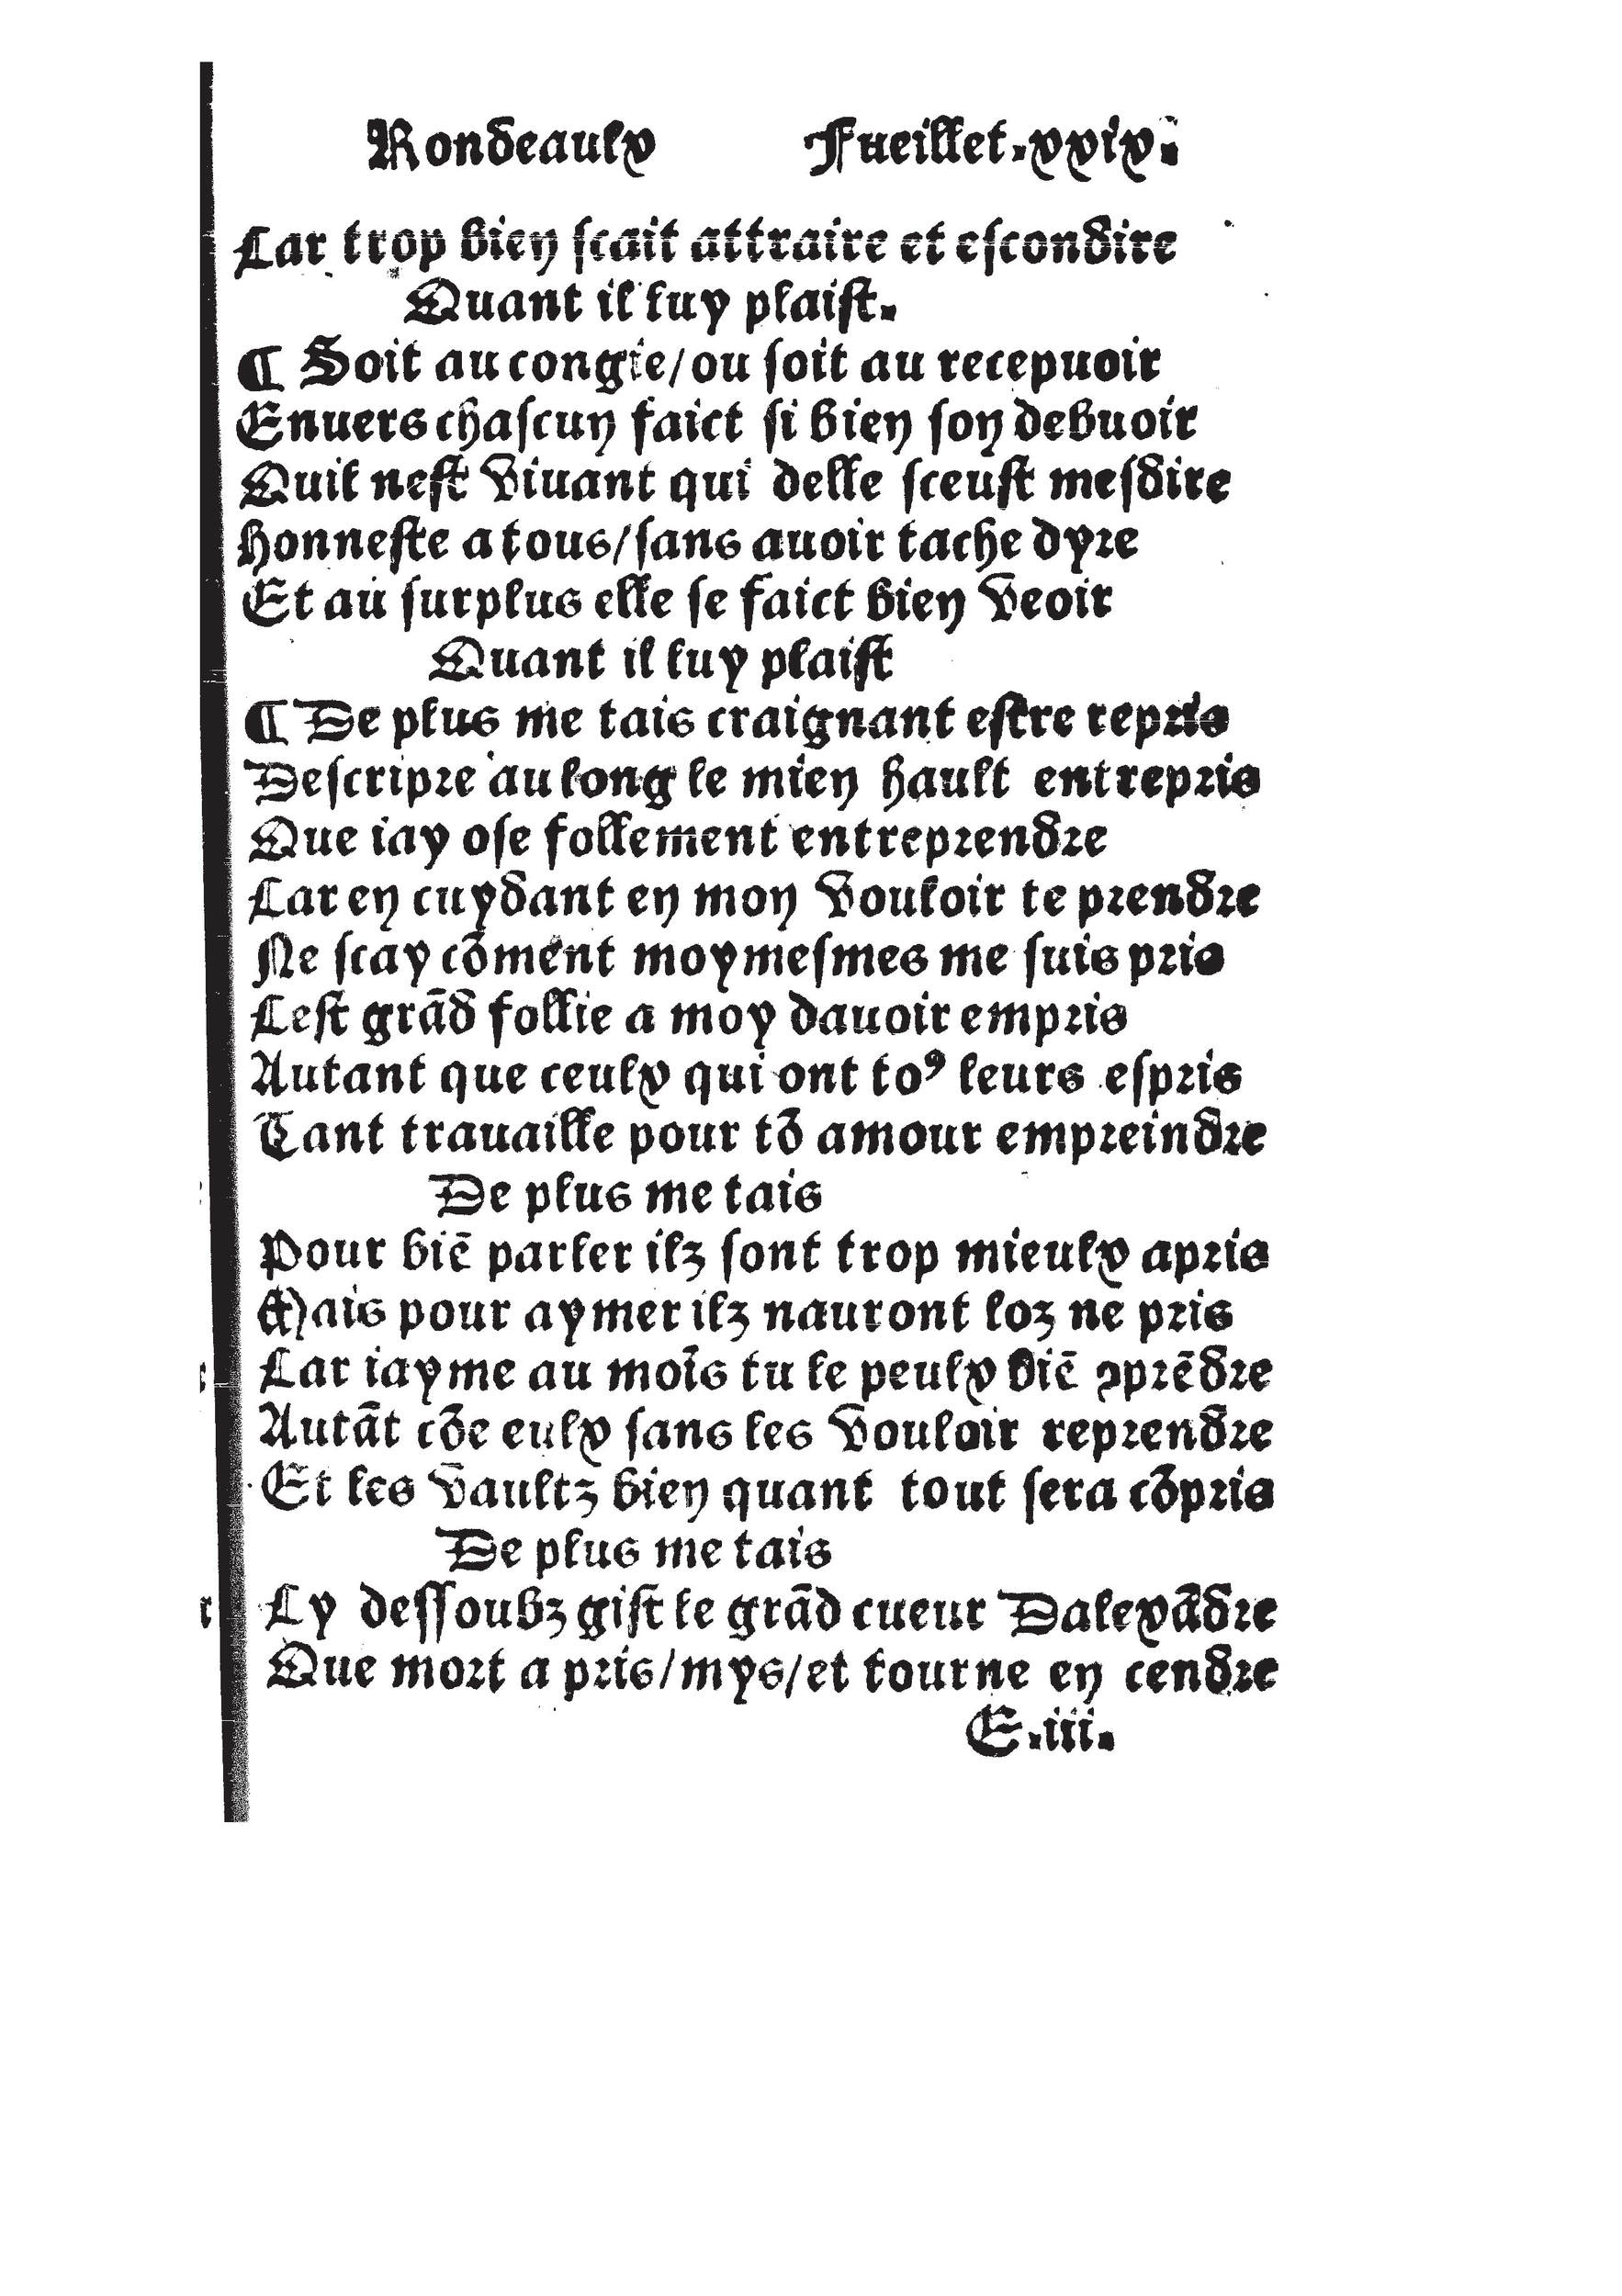 Rondeaulx Fueillet.xxix.
Car trop bien scait attraire et escondire
Quant il luy plaist.
¶ Soit au congie/ou soit au recepuoir
Enuers chascun faict si bien son debuoir
Quil nest viuant qui delle sceust mesdire
Honneste a tous/sans auoir tache dyre
Et au surplus elle se faict bien veoir
Quant il luy plaist
¶ De plus me tais craignant estre repris
Descripre au long le mien hault entrepris
Que iay ose follement entreprendre
Car en cuydant en mon vouloir te prendre
Ne scay cõment moymesmes me suis pris
Cest grãd follie a moy dauoir empris
Autant que ceulx qui ont toꝰ leurs espris
Tant trauaille pour tõ amour empreindre
De plus me tais
Pour biẽ parler ilz sont trop mieulx apris
Mais pour aymer ilz nauront loz ne pris
Car iayme au moĩs tu le peulx biẽ ꝯprẽdre
Autãt cõe eulx sans les vouloir reprendre
Et les vaultz bien quant tout sera cõpris
De plus me tais
Cy dessoubz gist le grãd cueur Dalexãdre
Que mort a pris/mys/et tourne en cendre
E.iii.